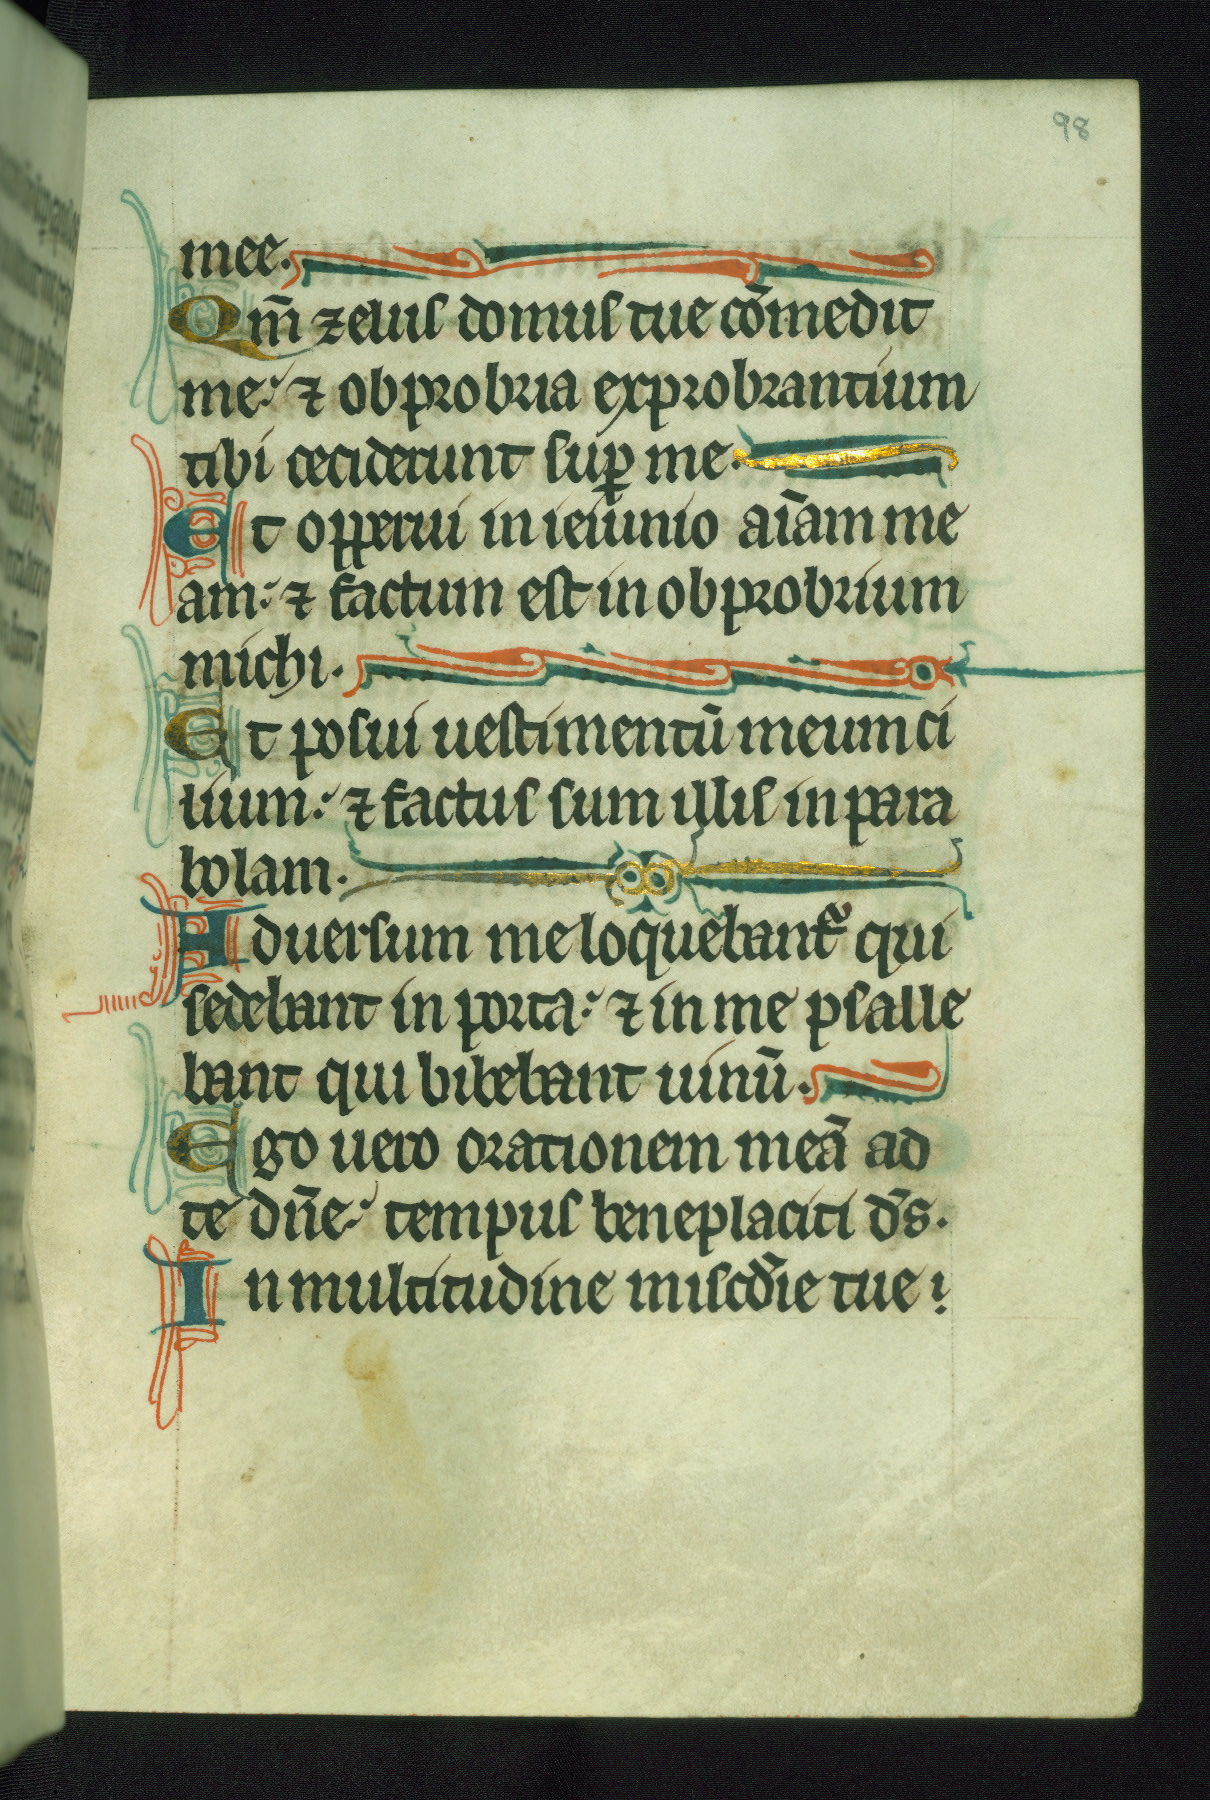 98
mee.
Qm̄ zelus domus tue cōmedit
me: ⁊ obprobria exprobrantium
tibi ceciderunt suꝑ me.
Et operui in ieiunio aīam me
am: ⁊ factum est in obprobrium
michi.
Et posui uestimentū meum ci
lium: ⁊ factus sum illis in para
bolam.
Aduersum me loquebant᷑ qui
sedebant in porta: ⁊ in me psalle
bant qui bibebant uinū.
Ego uero orationem meā ad
te dn̄e: tempus beneplaciti d̄s.
In multitudine misc̄die tue: